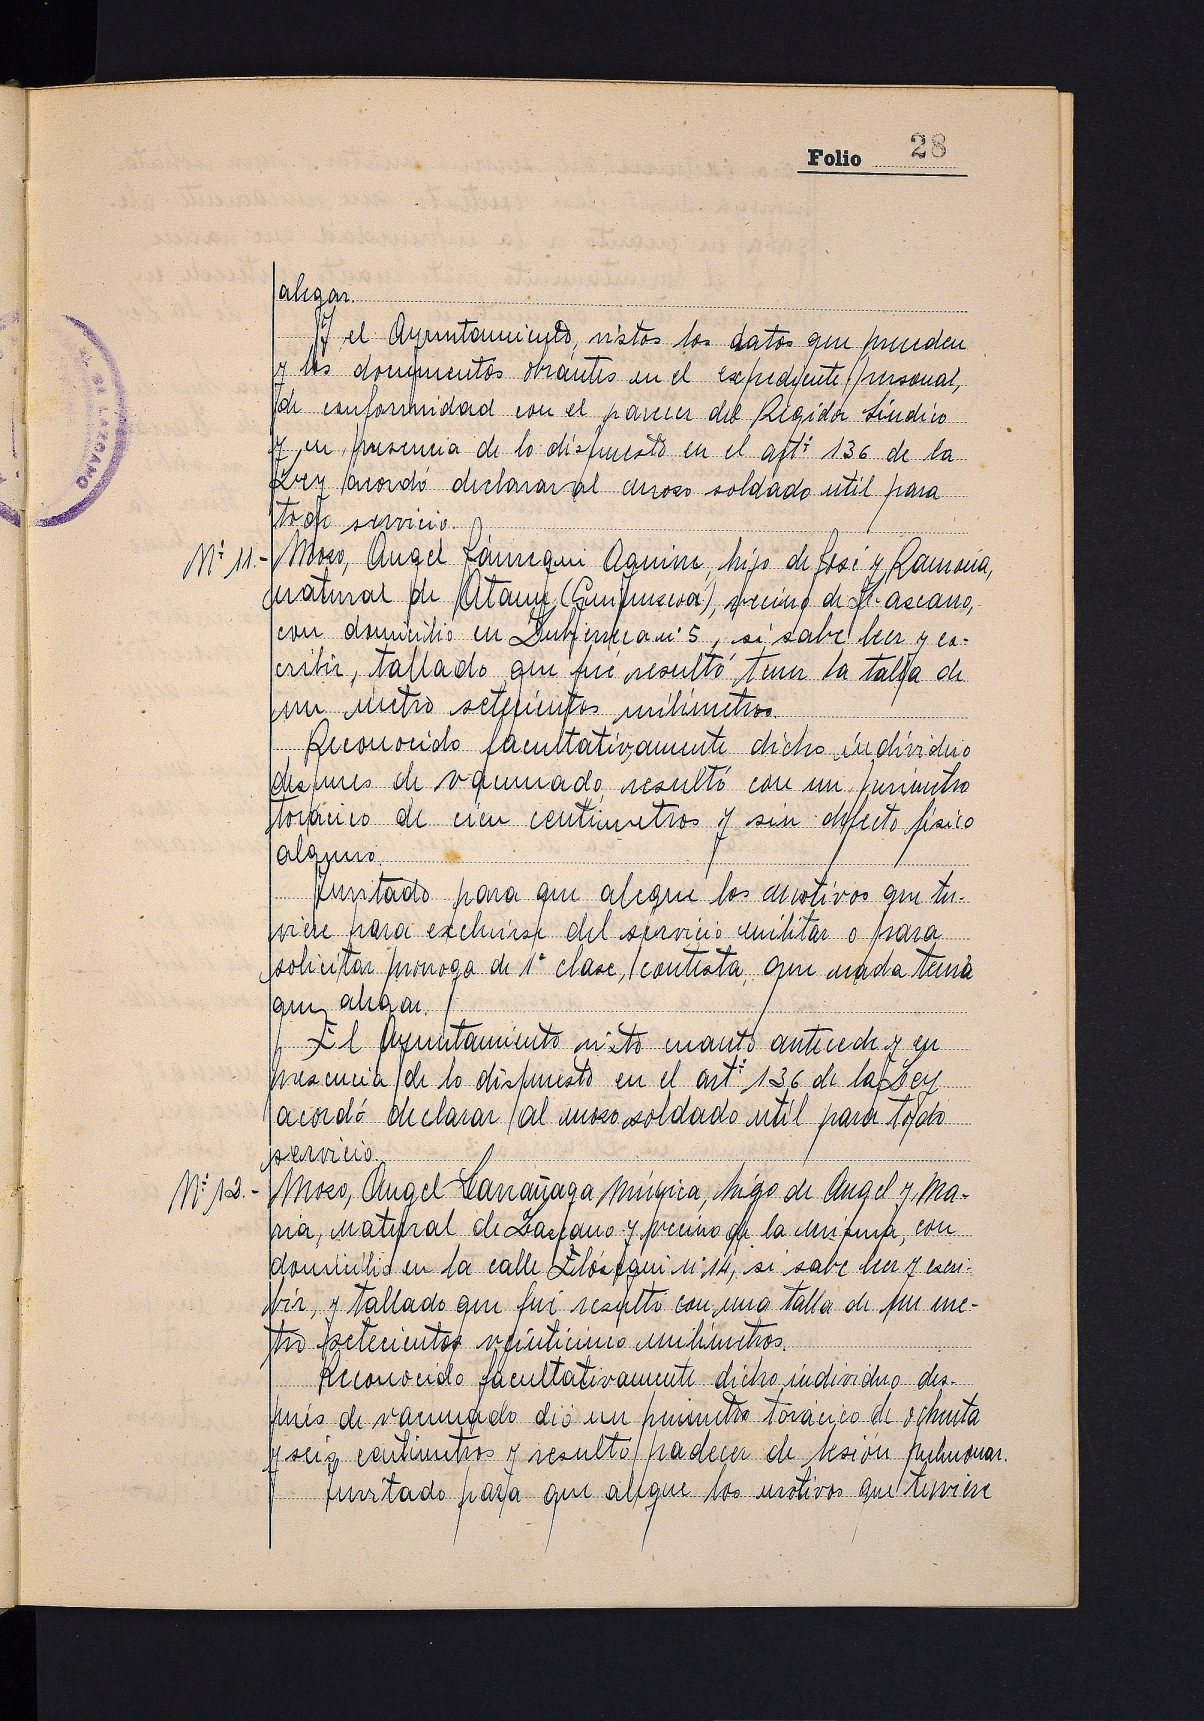 Folio 28
alegar.
Y el Ayuntamiento, vistos los datos que preceden
y los documentos obrantes en el expediente personal,
de conformidad con el parecer del Regidor Síndico
y en presencia de lo dispuesto en el artº 136 de la
Ley acordó declarar al mozo soldado util para
todo servicio.
Nº 11.- Mozo, Angel Jáuregui Aguirre, hijo de José y Ramona,
natural de Ataun (Guipuzcoa), vecino de Lazcano,
con domicilio en nº 5, si sabe leer y es-
cribir, tallado que fué resultó tener la talla de
un metro setecientos milimetros.
Reconocido facultativamente dicho individuo
despues de vacunado, resultó con un perimetro
torácico de cien centimetros y sin defecto fisico
alguno.
Invitado para que alegue los motivos que tu-
viere para excluirse del servicio militar o para
solicitar prorroga de 1ª clase, contesta, que nada tenia
que alegar.
El Ayuntamiento visto cuanto antecede y en
presencia de lo dispuesto en el artº 136 de la Ley
acordó declarar al mozo soldado util para todo
servicio.
Nº 12.- Mozo, Angel Larrañaga Múgica, hijo de Angel y Ma-
ria, natural de Lazcano y vecino de la misma, con
domicilio en la calle Elósegui nº 14, si sabe leer y escri-
bir, y tallado que fué resultó con una talla de un me-
tro setecientos veinticinco milimetros.
Reconocido facultativamente dicho individuo des-
pués de vacunado dió un perimetro torácico de ochenta
y seis centimetros y resultó padecer de lesión pulmonar.
Invitado para que alegue los motivos que tuviere
DE LAZCANO